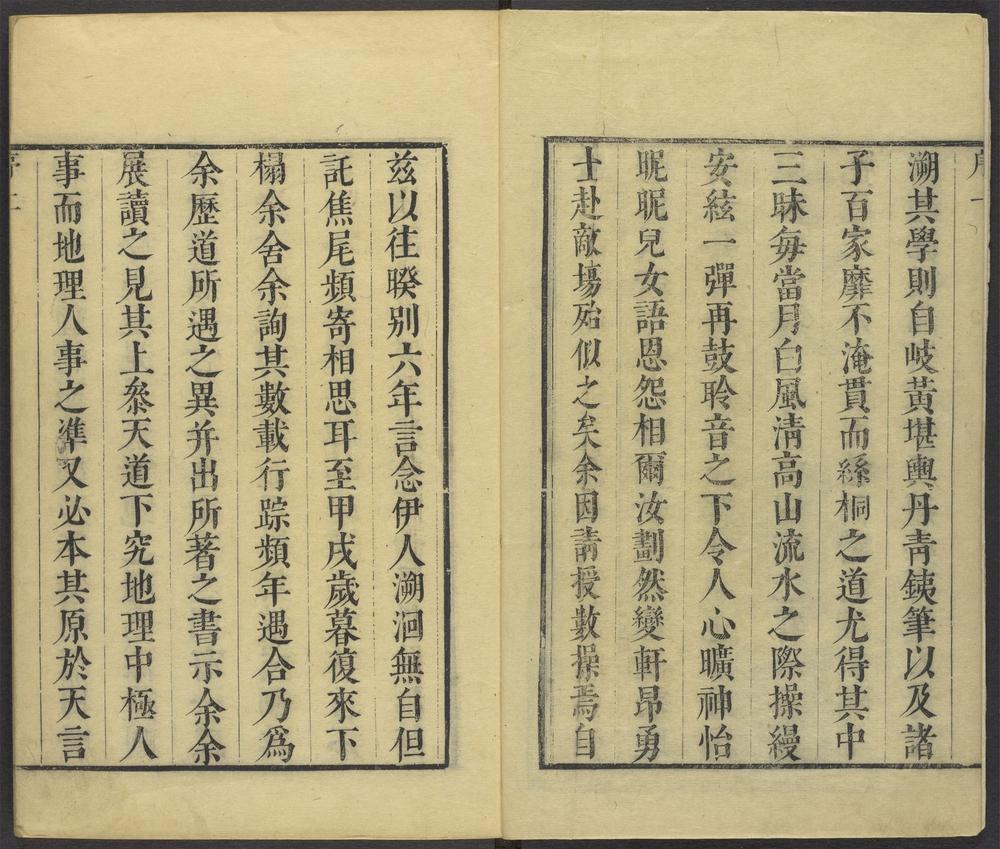 序一
溯其學則自岐黃堪輿丹靑銕筆以及諸
子百家靡不淹貫而絲桐之道尤得其中
三昧每當月白風清高山流水之際操縵
安絃一彈再鼓聆音之下令人心曠神怡
昵昵兒女語恩怨相爾汝劃然變軒昂勇
士赴敵塲殆似之矣余因請授數操焉自
茲以往暌別六年言念伊人溯洄無自但
託焦尾頻寄相思耳至甲戌歲暮復來下
榻余舍余詢其數載行踪頻年遇合乃爲
余歷道所遇之異并出所著之書示余余
展讀之見其上叅天道下究地理中極人
事而地理人事之準又必本其原於天言